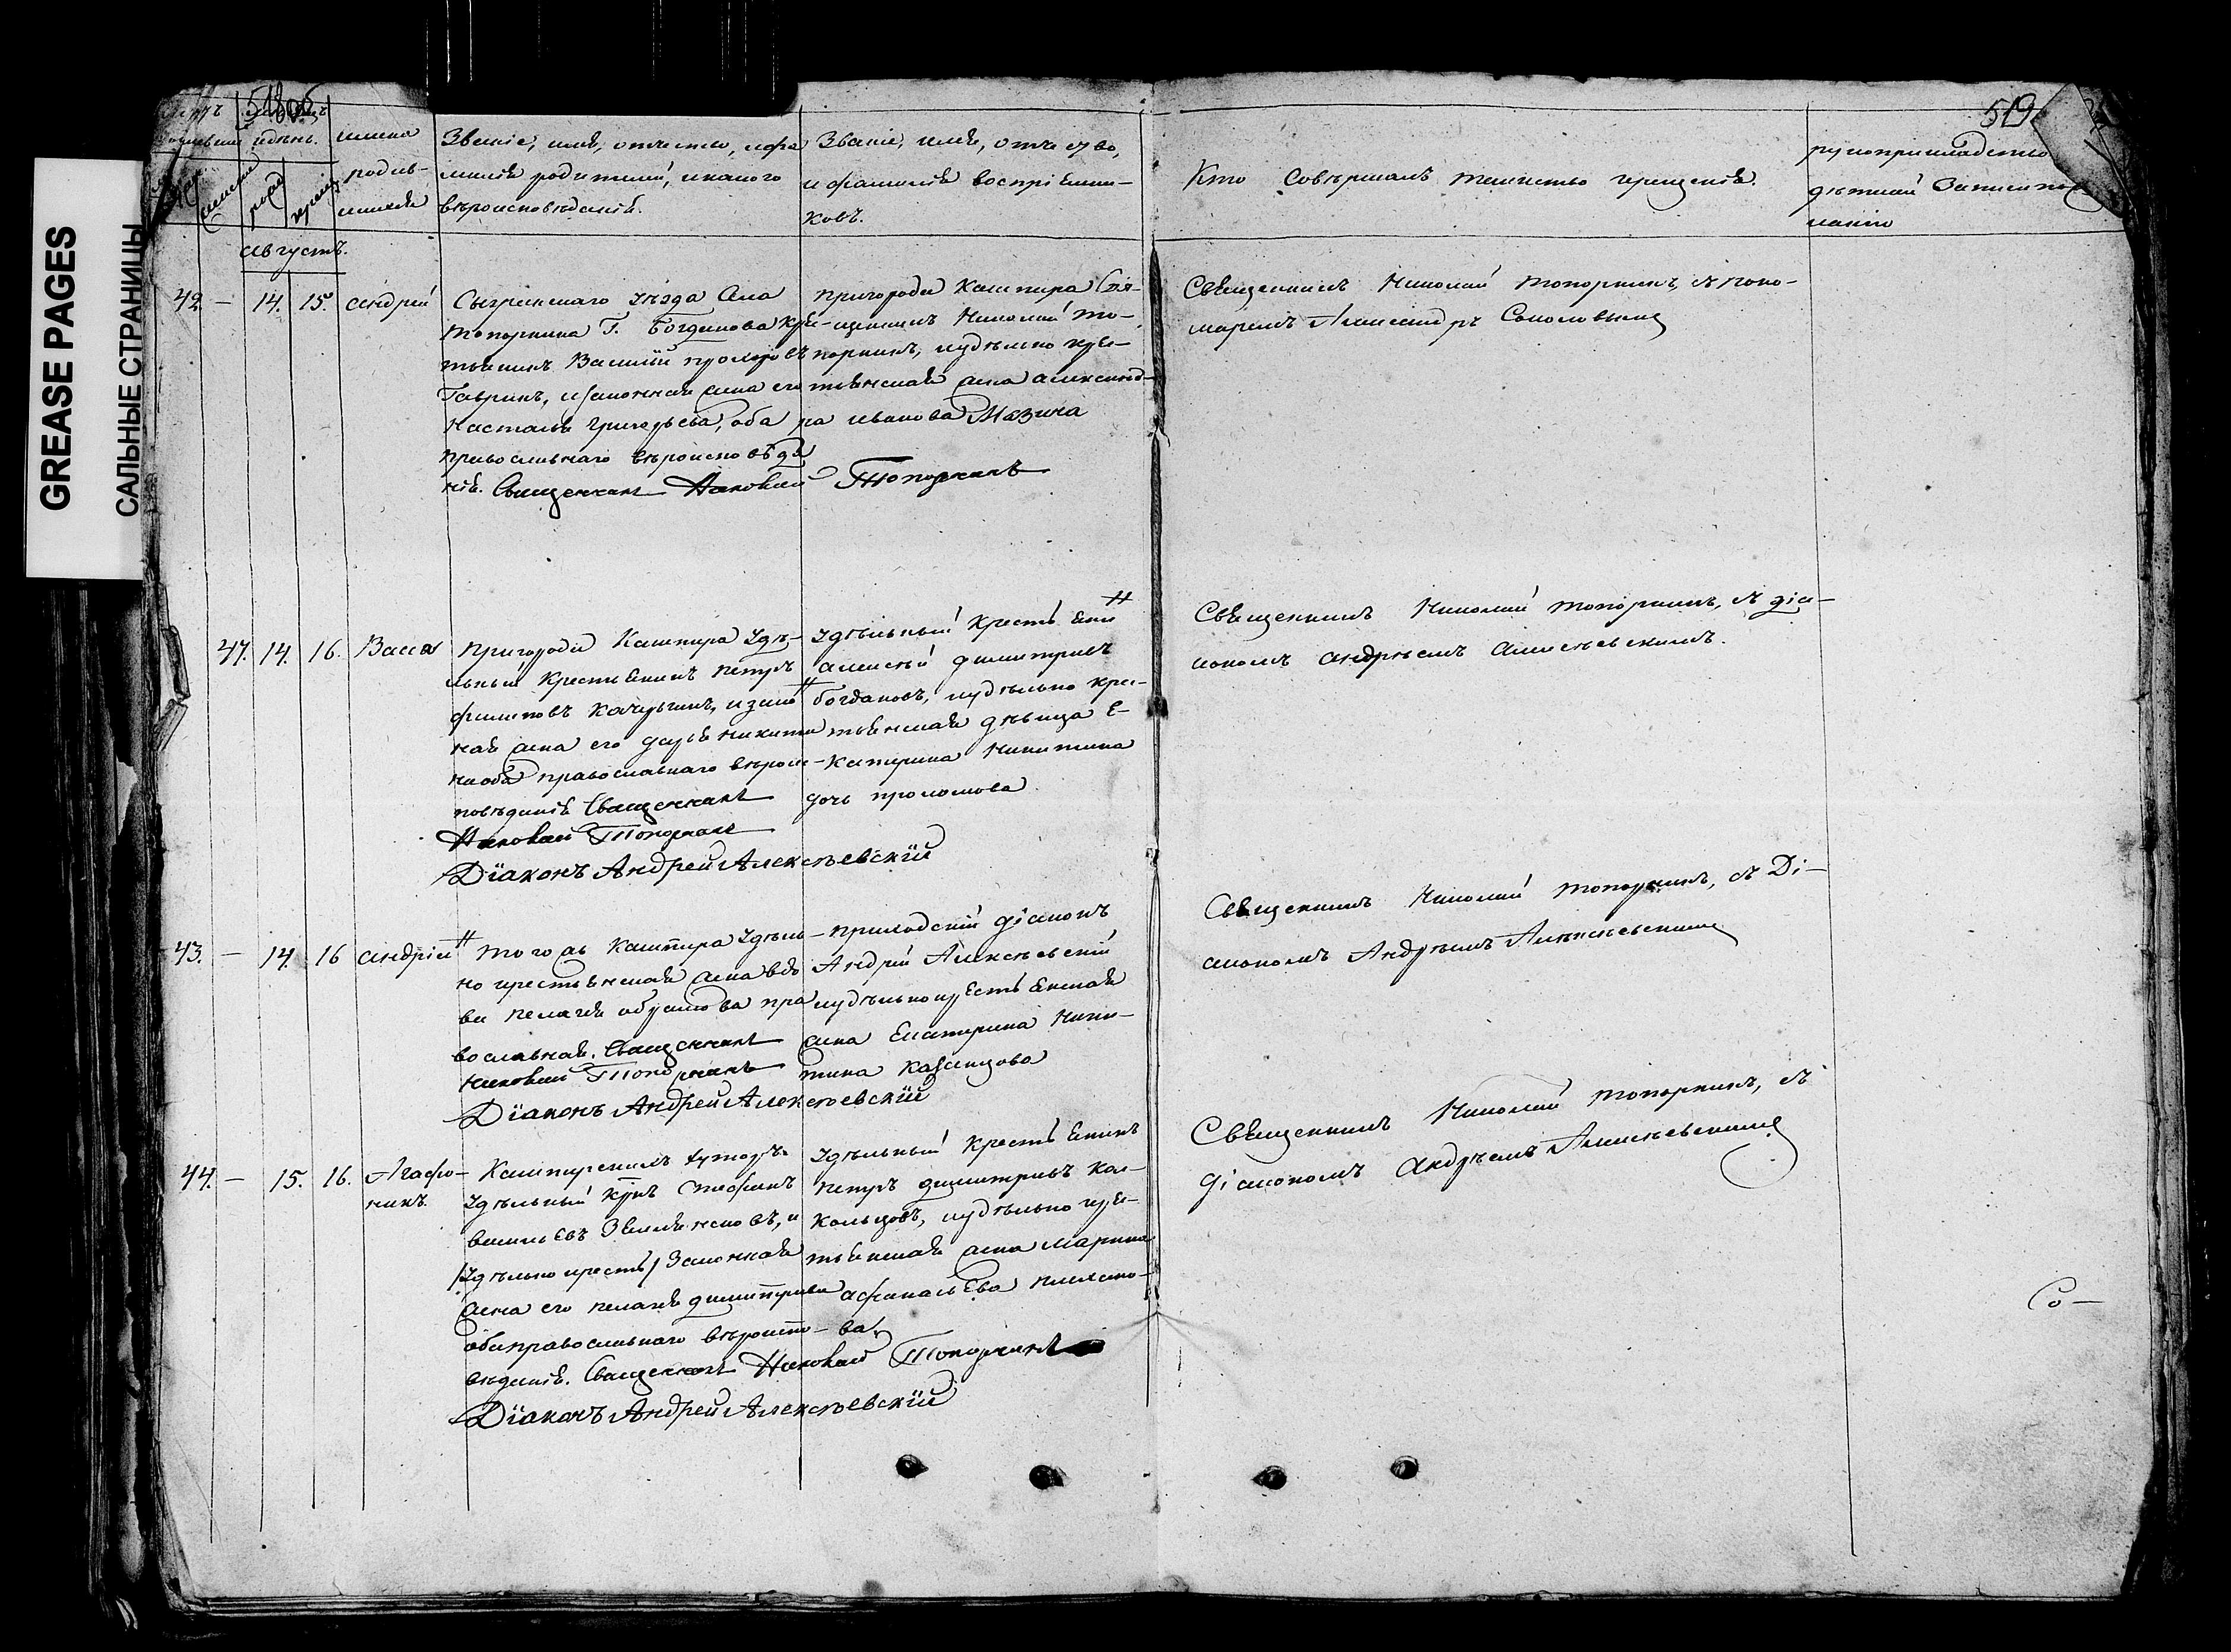 GREASE PAGES
САЛЬНЫЕ СТРАНИЦЫ
519
имена
родив-
шихся
Званіе, имя, отчество, и фа
милія родителей, и какого
вѣроисповѣданія.
Званіе, имя, отчество,
и фамилія воспріемни-
ковъ.
Кто совершалъ таинство крещенія.
рукоприкладство
Августъ.
42. — 14. 15. Андрей
Сызранскаго уѣзда села
Топорнина Г. Богданова кре-
стьянинъ Василій
Гавринъ, и законная жена его
Настасья Григорьева, оба
православнаго вѣроисповѣда
нія. Священникъ Николай Топорнинъ
пригорода Кашпира Свя-
щенникъ Николай То-
порнинъ, и удѣльно кре-
стьянская жена Александ-
ра Иванова Мазина
Священникъ Николай Топорнинъ, съ поно-
маремъ Александръ Соколовымъ
47. 14. 16. Васса
Пригорода Кашпира удѣ-
льный крестьянинъ Петръ
Филиповъ Качуринъ, и закон
ная жена его Дарья Никити
на оба православнаго вѣроис-
повѣданія Священникъ
Николай Топорнинъ
Діаконъ Андрей Алексѣевскій
удѣльный крестьянин
Алексѣй Димитріевъ
Богдановъ, и удѣльно крес-
тьянская дѣвица Е-
катерина Никитина
дочь Проломова
Священникъ Николай Топорнинъ, съ діа-
кономъ Андреемъ Алексѣевскимъ.
43. — 14. 16 Андрей
Того жъ Кашпира удѣль-
но крестьянская жена вдо
ва Пелагея пра
вославная. Священникъ
Николай Топорнинъ
Діаконъ Андрей Алексѣевскій
приходскій діаконъ
Андрей Алексѣевскій
и удѣльно крестьянская
жена Екатерина Ники-
тина Казанцова
Священникъ Николай Топорнинъ, съ Ді-
акономъ Андреемъ Алексѣевскимъ
44. — 15. 16. Агафо-
никъ.
Кашпирскихъ хуторъ
удѣльный крнъ Стефанъ
Васильевъ Земляносковъ, и
/удѣльно крестья/ законная
жена его Пелагея Димитріева
оба православнаго вѣроиспо-
вѣданія. Священникъ Николай Топорнинъ
Діаконъ Андрей Алексѣевскій
удѣльный крестьянинъ
Петръ Димитріевъ Кол-
кольцовъ, и удѣльно кре-
стьянская жена Марина
Афанасьева
ва,
Священникъ Николай Топорнинъ, съ
діакономъ Андреемъ Алексѣевскимъ
Со-